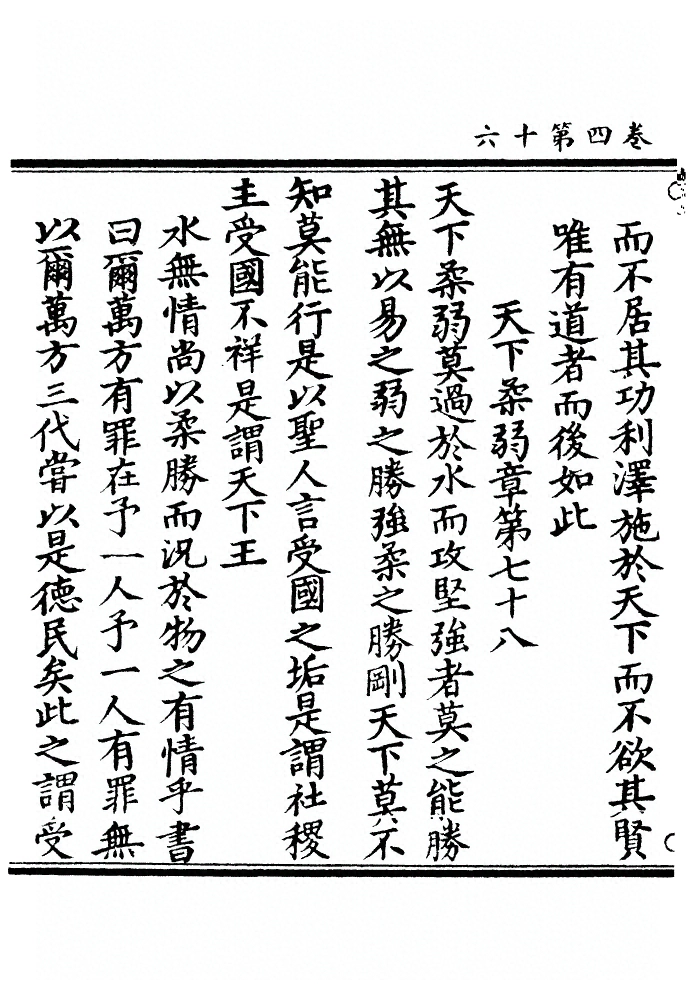 卷四第十六
而不居其功利澤施於天下而不欲其賢
唯有道者而後如此
天下柔弱章第七十八
天下柔弱莫過於水而攻堅強者莫之能勝
其無以易之弱之勝強柔之勝剛天下莫不
知莫能行是以聖人言受國之垢是謂社稷
主受國不祥是謂天下王
水無情尚以柔勝而況於物之有情乎書
曰爾萬方有罪在予一人予一人有罪無
以爾萬方三代嘗以是德民矣此之謂受